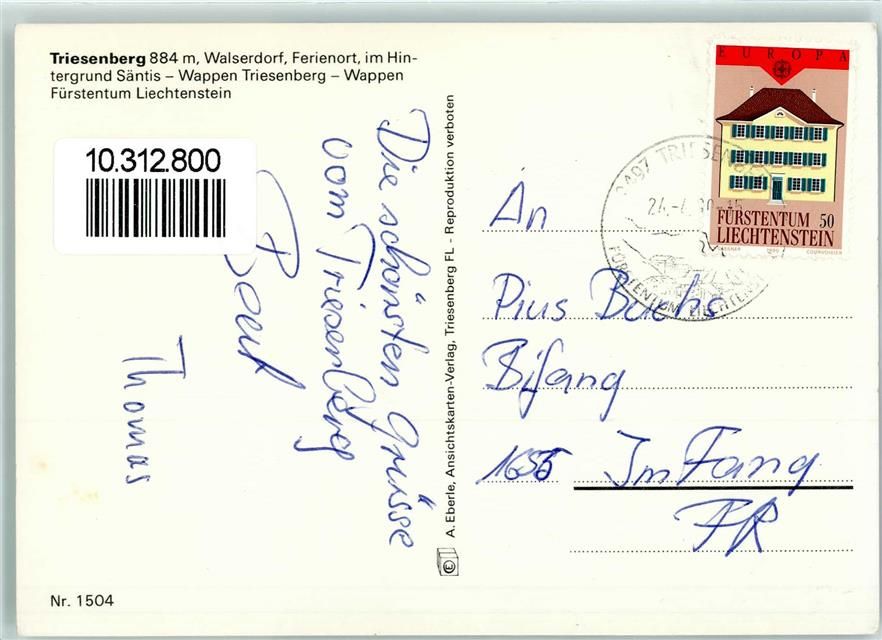 Triesenberg 884 m, Walserdorf, Ferienort, im Hin-
tergrund Säntis – Wappen Triesenberg – Wappen
Fürstentum Liechtenstein
10.312.800
Die schönsten Grüsse
vom Triesenberg
Thomas
Nr. 1504
A. Eberle, Ansichtskarten-Verlag, Triesenberg FL - Reproduktion verboten
EUROPA
FÜRSTENTUM 50
LIECHTENSTEIN
1990
COURVOISIER
9497 TRIESENBERG
FÜRSTENTUM LIECHTENSTEIN
An
Pius Buchs
Bifang
1656 Im Fang
FR